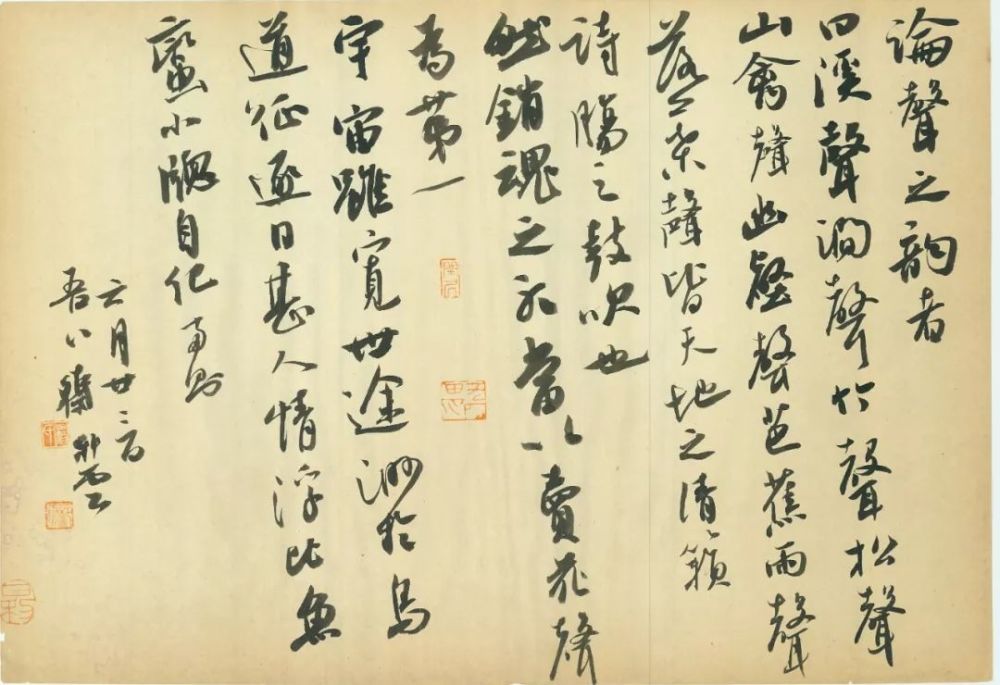 論聲之韻者
曰溪聲澗聲竹聲松聲
山禽聲幽壑聲芭蕉雨聲
落葉聲皆天地之清籟
詩腸之鼓吹也
然銷魂之聽當以賣花聲
為第一
宇宙雖寬世途渺於鳥
道征逐日甚人情浮比魚
蠻小牕自紀兩則
六月廿二日